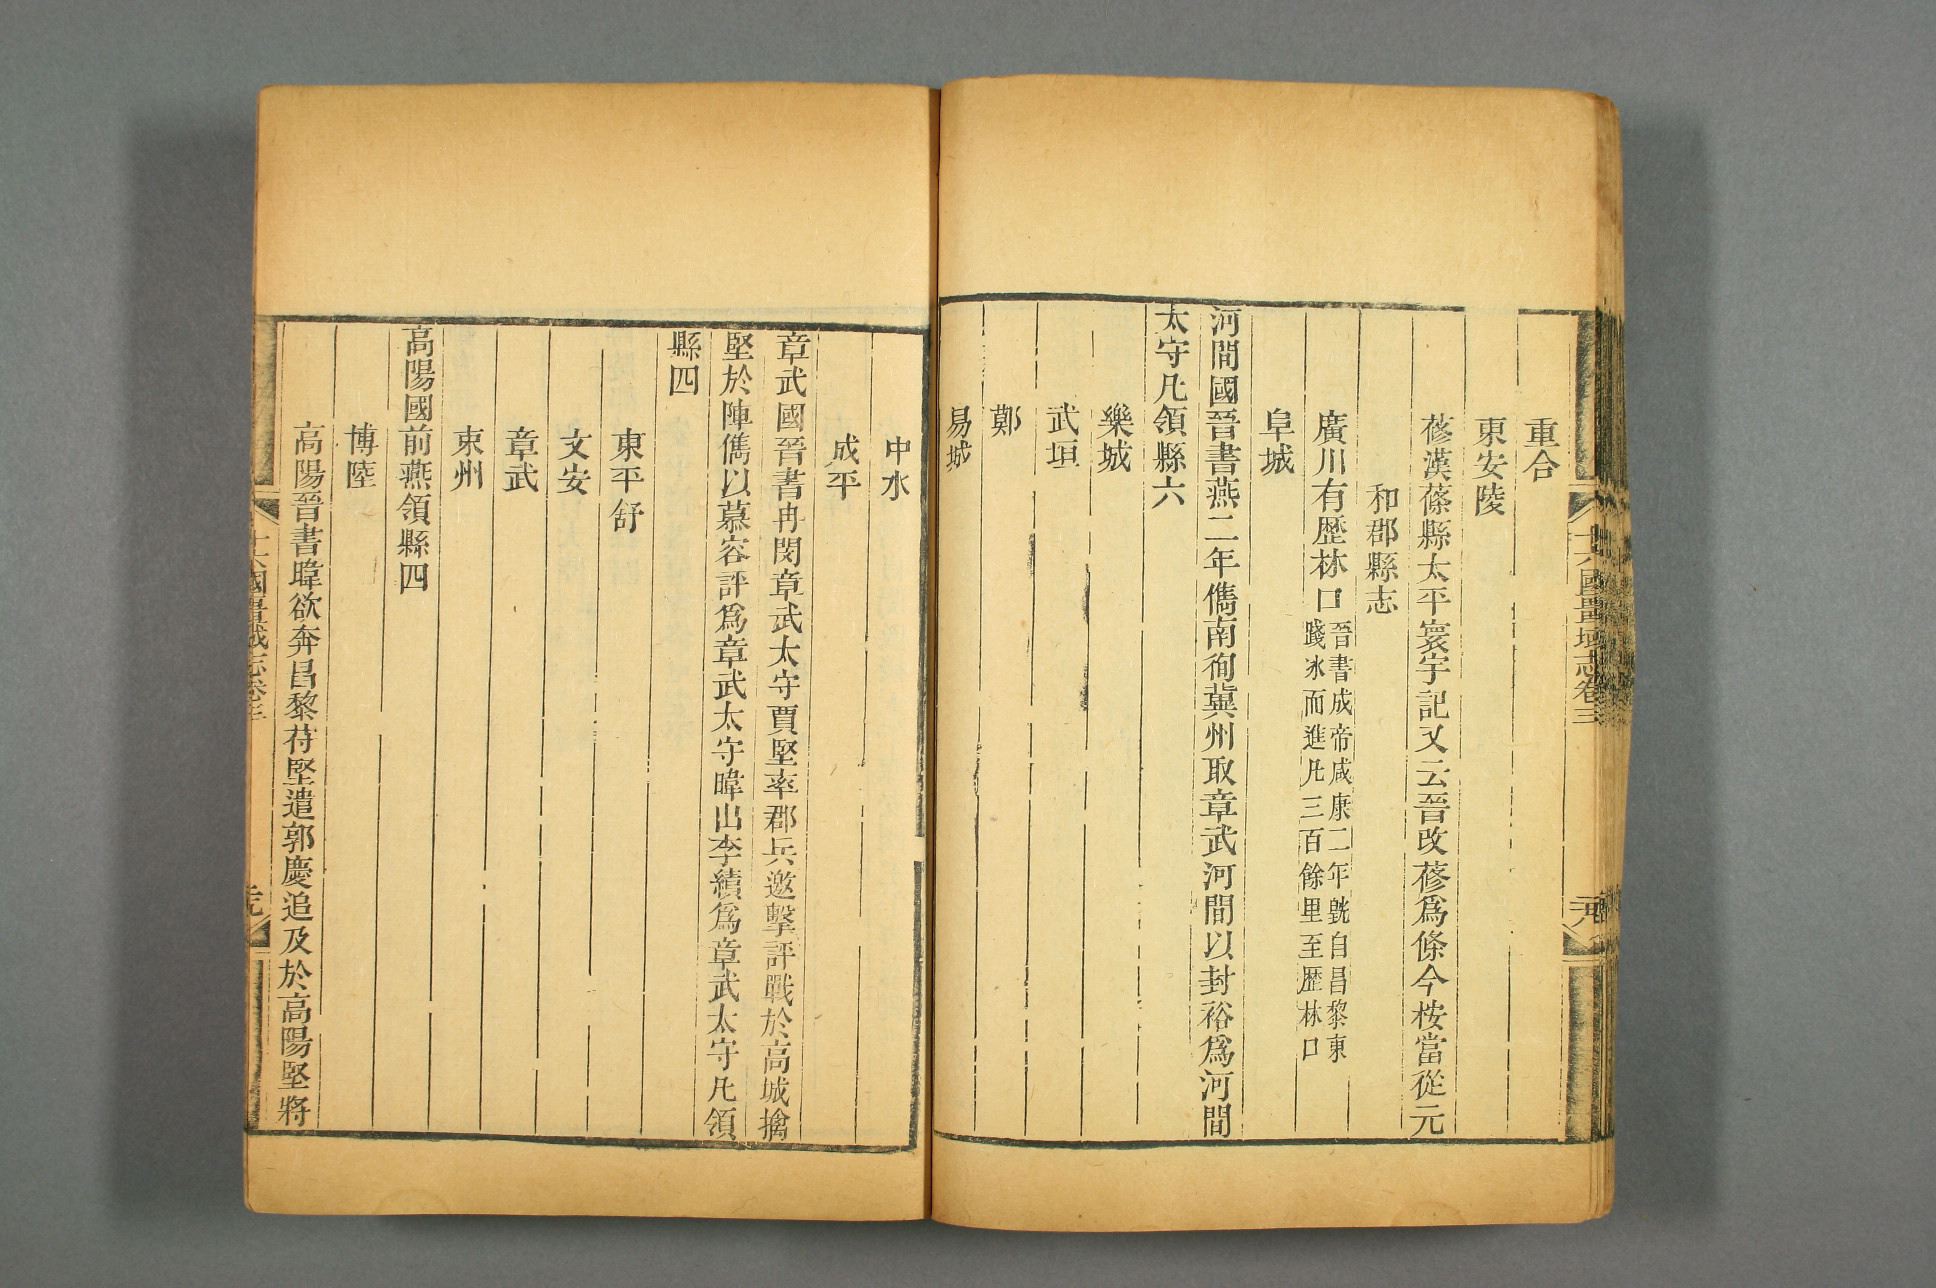 十六國疆域志卷三
重合
東安陵
蓚漢蓨縣太平寰宇記又云晉改蓚爲條今桉當從元
和郡縣志
廣川有歷林口晉書成帝咸康二年皝自昌黎東
踐冰而進凡三百餘里至歷林口
阜城
河間國晉書燕二年儁南徇冀州取章武河間以封裕爲河間
太守凡領縣六
樂城
武垣
鄭
易城
中水
成平
章武國晉書冉閔章武太守賈堅率郡兵邀擊評戰於高城擒
堅於陣儁以慕容評爲章武太守暐出李績爲章武太守凡領
縣四
東平舒
文安
章武
束州
高陽國前燕領縣四
博陸
高陽晉書暐欲奔昌黎苻堅遣郭慶追及於高陽堅將
十六國疆域志卷三